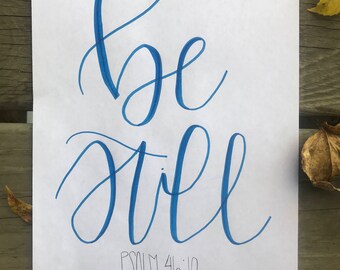 be
still
PSALM 46:10